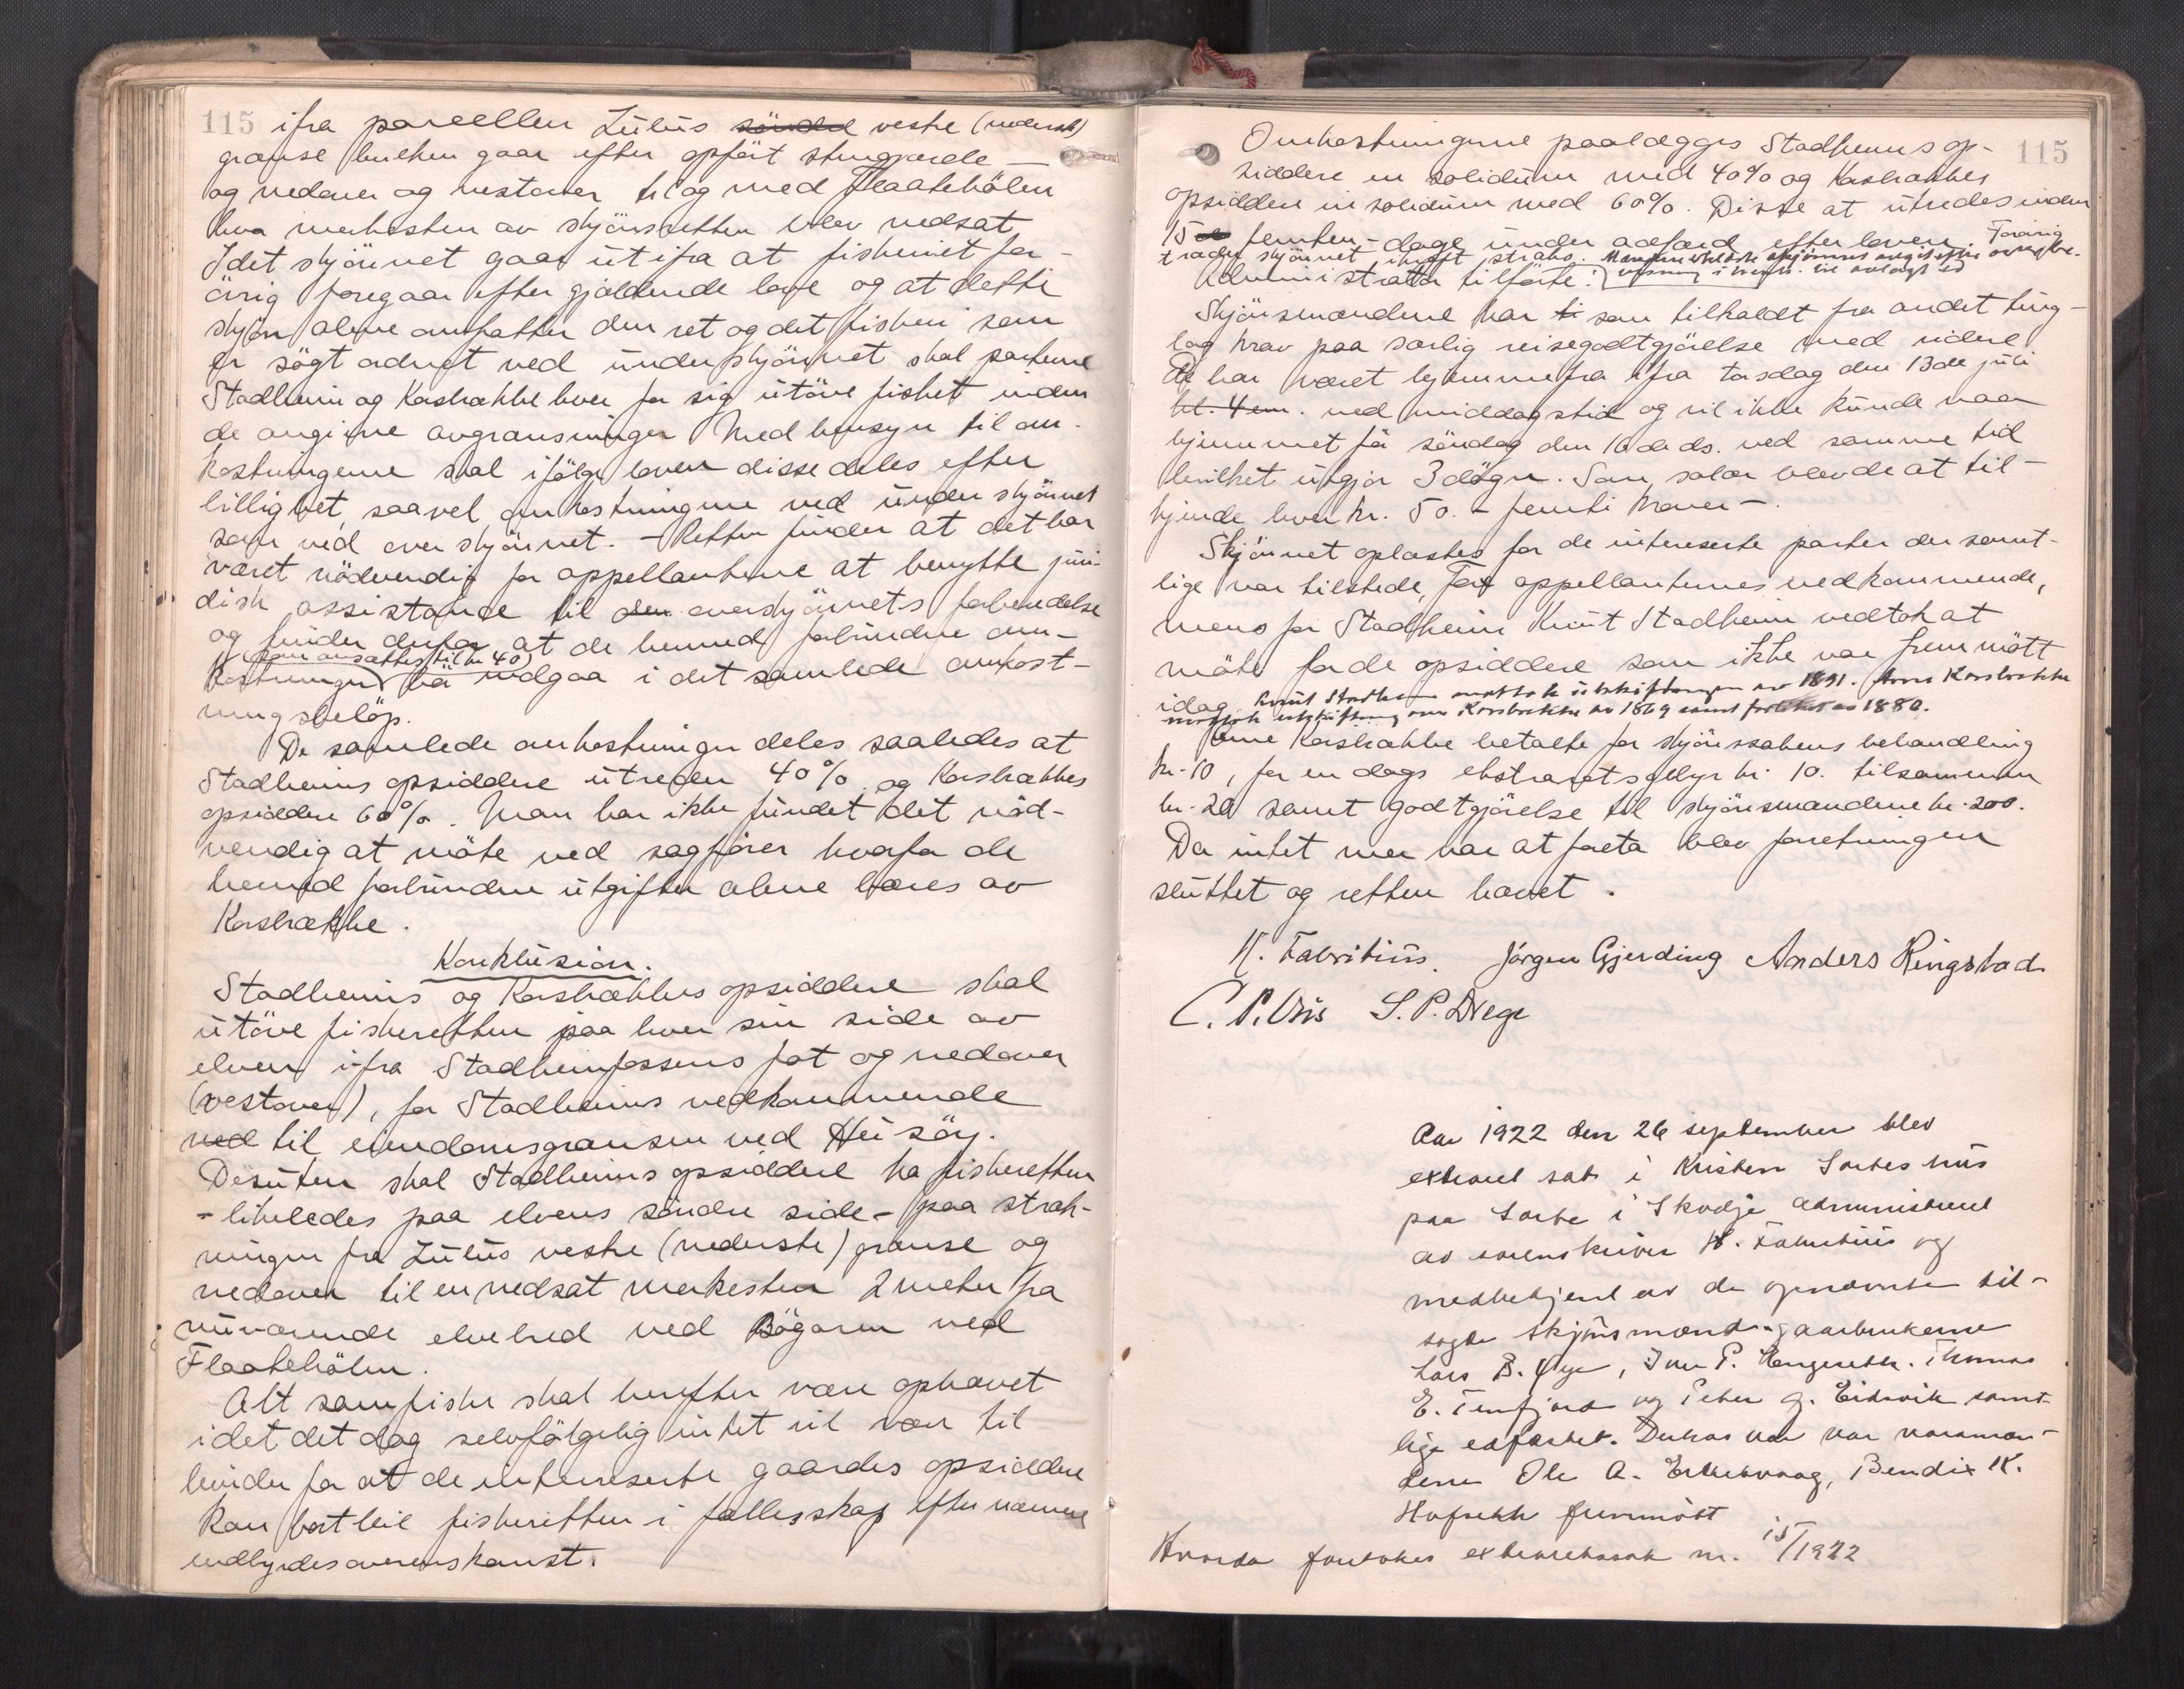 115 ifra parcellen Zulus söndre vestre (nederste)
grænse hvilken gaar efter opført stengjærde —
og nedover og vestover til og med Flaatehölen
hvor merkesten av skjönsretten blev nedsat.
Idet skjönnet gaar ut ifra at fiskeriet for-
övrig foregaar efter gjældende love og at dette
skjön alene omfatter den ret og det fiskeri som
er sögt ordnet ved underskjönnet skal parterne
Stadheim og Korsbrekke hver for sig utöve fisket inden
de angivne avgrænsninger. Med hensyn til om-
kostningerne skal ifölge loven disse deles efter
billighet, saavel omkostningerne ved underskjönnet
som ved overskjönnet. — Retten finder at det har
været nödvendig for appellanterne at benytte juri-
disk assistance til den overskjönnets forberedelse
og finder derfor at de hermed forbundne om-
(som ansættes til kr 40)
kostninger bör indgaa i det samlede omkost-
ningsbelöp.
De samlede omkostninger deles saaledes at
Stadheims opsiddere utreder 40% og Korsbrekkes
opsiddere 60%. Man har ikke fundet det nöd-
vendig at möte ved sagförer hvorfor de
hermed forbundne utgifter alene bæres av
Korsbrekke.
Konklusion.
Stadheims og Korsbrekkes opsiddere skal
utöve fiskeretten paa hver sin side av
elven ifra Stadheimfossens fot og nedover
(vestover), for Stadheims vedkommende
ned til eiendomsgrænsen ved Heisöy.
Desuten skal Stadheims opsiddere ha fiskeretten
- likeledes paa elvens söndre side - paa stræk-
ningen fra Zulus vestre (nederste) grænse og
nedover til en nedsat merkesten 2 meter fra
nuværende elvebred ved Bögaren ved
Flaatehölen.
Alt samfiske skal herefter være ophævet
idet det dog selvfölgelig intet vil være til
hinder for at de interesserte gaardes opsiddere
kan bortleie fiskeretten i fællesskap efter nærmere
indbyrdes overenskomst.
115
Omkostningerne paalægges Stadheims op-
siddere in solidum med 40% og Korsbrekkes
opsiddere in solidum med 60%. Disse at utredes inden
15 femten - dage under adfærd efter loven. Forövrig
træder skjönnet i kraft straks.
Administrator tilförte:
Skjönsmændene har som tilkaldt fra andet ting-
lag krav paa særlig reisegodtgjörelse med videre
De har været hjemmefra ifra torsdag den 13de juli
kl. 4 em. ved middagstid og vil ikke kunde naa
hjemmet för söndag den 16de ds. ved samme tid
hvilket utgjör 3 dögn. Som salær blev de at til-
kjende hver kr. 50. - femti kroner -.
Skjönnet oplæstes for de interesserte parter der samt-
lige var tilstede, for appellanternes vedkommende,
mens for Stadheim Knut Stadheim vedtok at
möte for de opsiddere som ikke var fremmött
idag. Knut Stadheim mottok utskiftningen av 1891. Arne Korsbrekke
mottok utskiftning over Korsbrekke av 1869 samt forliket av 1880.
Arne Korsbrekke betalte for skjönssakens behandling
kr. 10, for en dags ekstraretsgebyr kr. 10. tilsammen
kr. 20 samt godtgjörelse til skjönsmændene kr. 200.
Da intet mer var at foreta blev forretningen
sluttet og retten hævet.
H. Fabritius. Jörgen Gjerding Anders Ringstad
C. P. Unis S. P. Drege
Aar 1922 den 26 september blev
extraret sat i Kristen Sortes hus
paa Sorte i Skodje administrert
av sorenskriver H. Fabritius og
medbetjent av de opnævnte til-
sagte skjönsmænd gaarbrukerne
Lars B. Öye, Iver P. Hengeseth. Thomas
E. Tenfjord og Peter G. Eidsvik samt-
lige edfæstet. Desuten var varamæn-
dene Ole A. Erkevaag, Bendix K.
Hofseth fremmött
Hvorda foretokes extraretssak nr. 15/1922